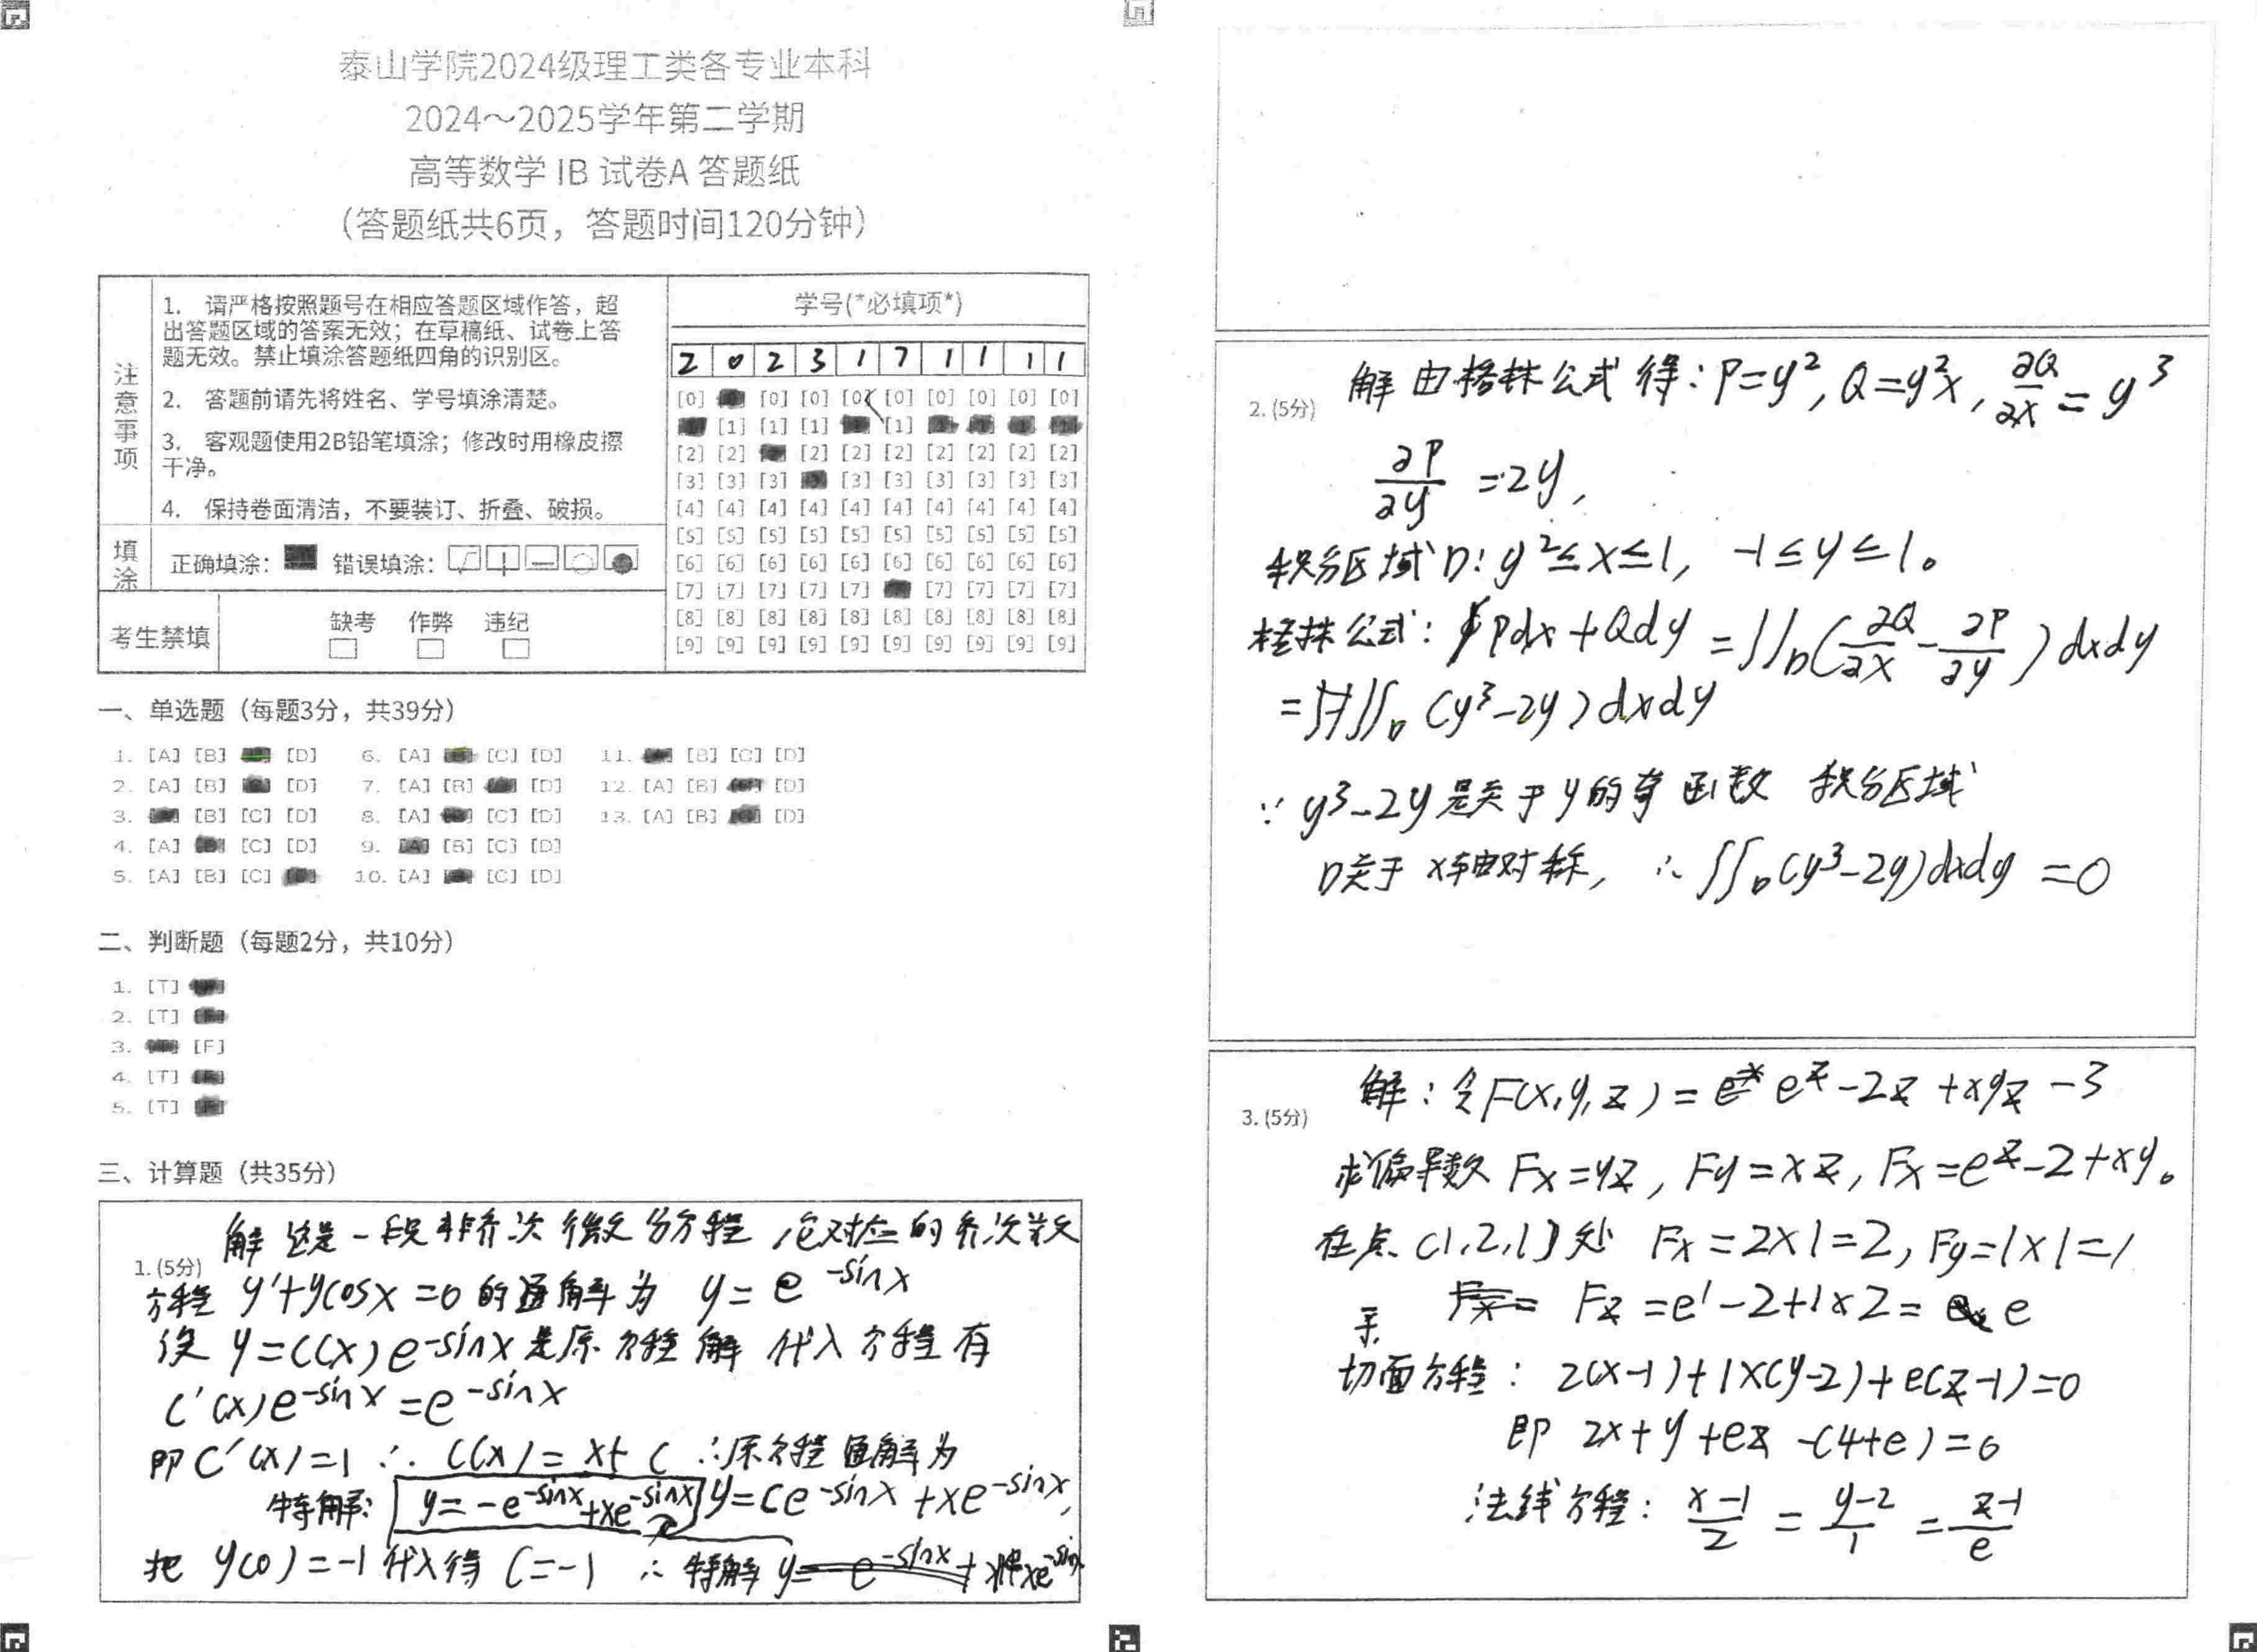 泰山学院2024级理工类各专业本科
2024～2025学年第二学期
高等数学 IB 试卷A 答题纸
（答题纸共6页，答题时间120分钟）
注意事项
1. 请严格按照题号在相应答题区域作答，超
出答题区域的答案无效；在草稿纸、试卷上答
题无效。禁止填涂答题纸四角的识别区。
2. 答题前请先将姓名、学号填涂清楚。
3. 客观题使用2B铅笔填涂；修改时用橡皮擦
干净。
4. 保持卷面清洁，不要装订、折叠、破损。
填涂
正确填涂： 错误填涂：
考生禁填
缺考 作弊 违纪
学号(*必填项*)
2 0 2 3 1 7 1 1 1 1
[0] [0] [0] [0] [0] [0] [0] [0] [0]
[1] [1] [1] [1]
[2] [2] [2] [2] [2] [2] [2] [2] [2]
[3] [3] [3] [3] [3] [3] [3] [3] [3]
[4] [4] [4] [4] [4] [4] [4] [4] [4] [4]
[5] [5] [5] [5] [5] [5] [5] [5] [5] [5]
[6] [6] [6] [6] [6] [6] [6] [6] [6] [6]
[7] [7] [7] [7] [7] [7] [7] [7] [7]
[8] [8] [8] [8] [8] [8] [8] [8] [8] [8]
[9] [9] [9] [9] [9] [9] [9] [9] [9] [9]
一、单选题（每题3分，共39分）
1. [A] [B] [D] 6. [A] [C] [D] 11. [B] [C] [D]
2. [A] [B] [D] 7. [A] [B] [D] 12. [A] [B] [D]
3. [B] [C] [D] 8. [A] [C] [D] 13. [A] [B] [D]
4. [A] [C] [D] 9. [A] [B] [C] [D]
5. [A] [B] [C] 10. [A] [C] [D]
二、判断题（每题2分，共10分）
1. [T]
2. [T]
3. [F]
4. [T]
5. [T]
三、计算题（共35分）
1. (5分)
解 这是一段非齐次微分方程，它对应的齐次
方程 y'+ycosx=0 的通解为 y=e^{-sinx}
设 y=C(x)e^{-sinx} 是原方程解 代入方程有
C'(x)e^{-sinx}=e^{-sinx}
即 C'(x)=1 ∴ C(x)=x+C ∴原方程通解为
特解: y=-e^{-sinx}+xe^{-sinx} y=Ce^{-sinx}+xe^{-sinx},
把 y(0)=-1 代入得 C=-1 ∴ 特解 y=
2. (5分)
解 由格林公式得：P=y², Q=y²x, ∂Q/∂x=y³
∂P/∂y=2y,
积分区域D: y²≤x≤1, -1≤y≤1。
格林公式：∮Pdx+Qdy=∬_D(∂Q/∂x-∂P/∂y)dxdy
=∬_D(y³-2y)dxdy
∵ y³-2y是关于y的奇函数 积分区域
D关于x轴对称, ∴ ∬_D(y³-2y)dxdy=0
3. (5分)
解：令F(x,y,z)=e^z-2z+xyz-3
求偏导数 Fx=yz, Fy=xz, Fx=e^z-2+xy。
在点(1,2,1)处 Fx=2×1=2, Fy=1×1=1
Fz=e^1-2+1×2=e
切面方程：2(x-1)+1×(y-2)+e(z-1)=0
即 2x+y+ez-(4+e)=0
法线方程：(x-1)/2=(y-2)/1=(z-1)/e